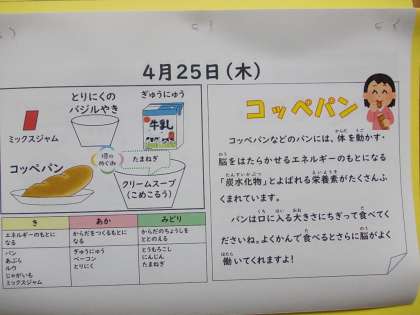 4月25日(木)
とりにくの
バジルやき
ぎゅうにゅう
牛乳
ミックスジャム
コッペパン
たまねぎ
クリームスープ
(こめこるう)
き
あか
みどり
エネルギーのもとに
なる
からだをつくるもとに
なる
からだのちょうしを
ととのえる
パン
あぶら
ルウ
じゃがいも
ミックスジャム
ぎゅうにゅう
ベーコン
とりにく
とうもろこし
にんじん
たまねぎ
コッペパン
コッペパンなどのパンには、体を動かす・
脳をはたらかせるエネルギーのもとになる
「炭水化物」とよばれる栄養素がたくさんふ
くまれています。
パンは口に入る大きさにちぎって食べてく
ださいね。よくかんで食べるとさらに脳がよく
働いてくれますよ!